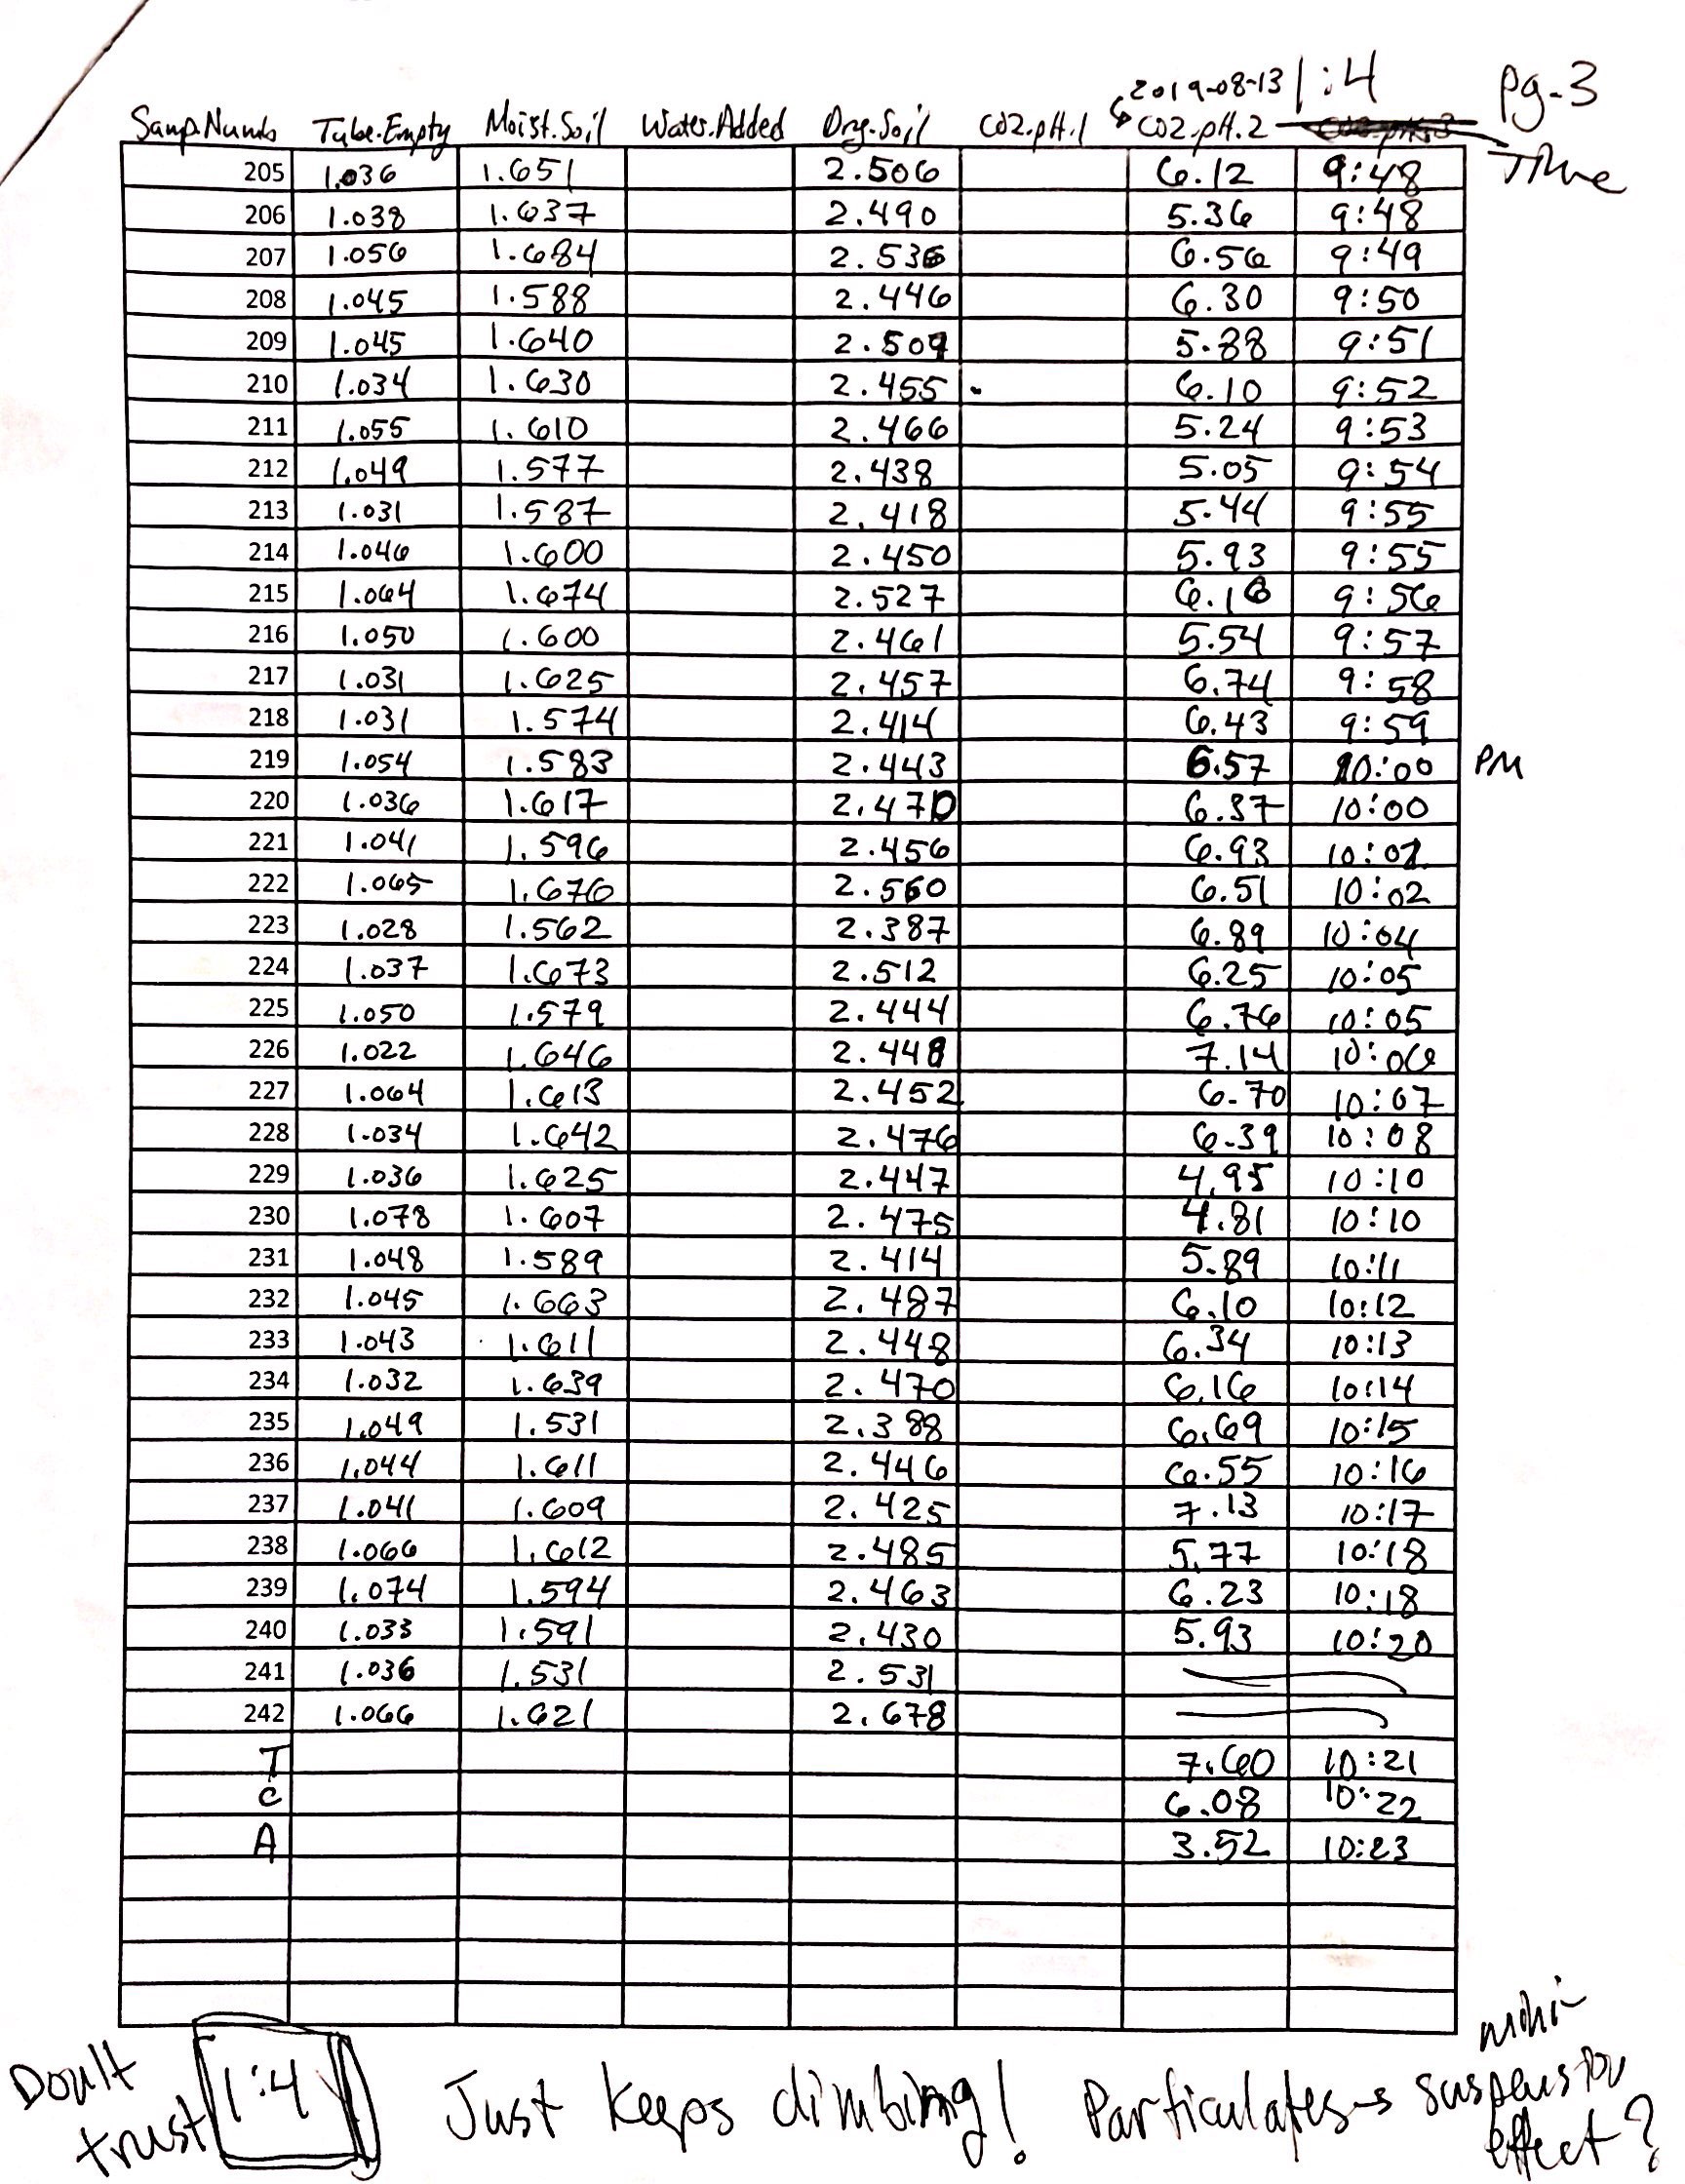 2019-08-13 1:4 pg-3
Samp.Numb Tube.Empty Moist.Soil Water.Added Dry.Soil CO2.pH.1 CO2.pH.2 Time
205 1.036 1.651 2.506 6.12 9:48
206 1.038 1.637 2.490 5.36 9:48
207 1.056 1.684 2.536 6.56 9:49
208 1.045 1.588 2.446 6.30 9:50
209 1.045 1.640 2.509 5.88 9:51
210 1.034 1.630 2.455 6.10 9:52
211 1.055 1.610 2.466 5.24 9:53
212 1.049 1.577 2.438 5.05 9:54
213 1.031 1.587 2.418 5.44 9:55
214 1.046 1.600 2.450 5.93 9:55
215 1.064 1.674 2.527 6.18 9:56
216 1.050 1.600 2.461 5.54 9:57
217 1.031 1.625 2.457 6.74 9:58
218 1.031 1.574 2.414 6.43 9:59
219 1.054 1.583 2.443 6.57 10:00 PM
220 1.036 1.617 2.470 6.37 10:00
221 1.041 1.596 2.456 6.93 10:02
222 1.065 1.676 2.560 6.51 10:02
223 1.028 1.562 2.387 6.89 10:04
224 1.037 1.673 2.512 6.25 10:05
225 1.050 1.579 2.444 6.76 10:05
226 1.022 1.646 2.448 7.14 10:06
227 1.064 1.613 2.452 6.70 10:07
228 1.034 1.642 2.476 6.39 10:08
229 1.036 1.625 2.447 4.95 10:10
230 1.078 1.607 2.475 4.81 10:10
231 1.048 1.589 2.414 5.89 10:11
232 1.045 1.663 2.487 6.10 10:12
233 1.043 1.611 2.448 6.34 10:13
234 1.032 1.639 2.470 6.16 10:14
235 1.049 1.531 2.388 6.69 10:15
236 1.044 1.611 2.446 6.55 10:16
237 1.041 1.609 2.425 7.13 10:17
238 1.066 1.612 2.485 5.77 10:18
239 1.074 1.594 2.463 6.23 10:18
240 1.033 1.591 2.430 5.93 10:20
241 1.036 1.531 2.531
242 1.066 1.621 2.678
T 7.60 10:21
C 6.08 10:22
A 3.52 10:23
Don't
trust 1:4 Just keeps climbing! Particulates → suspension
effect?